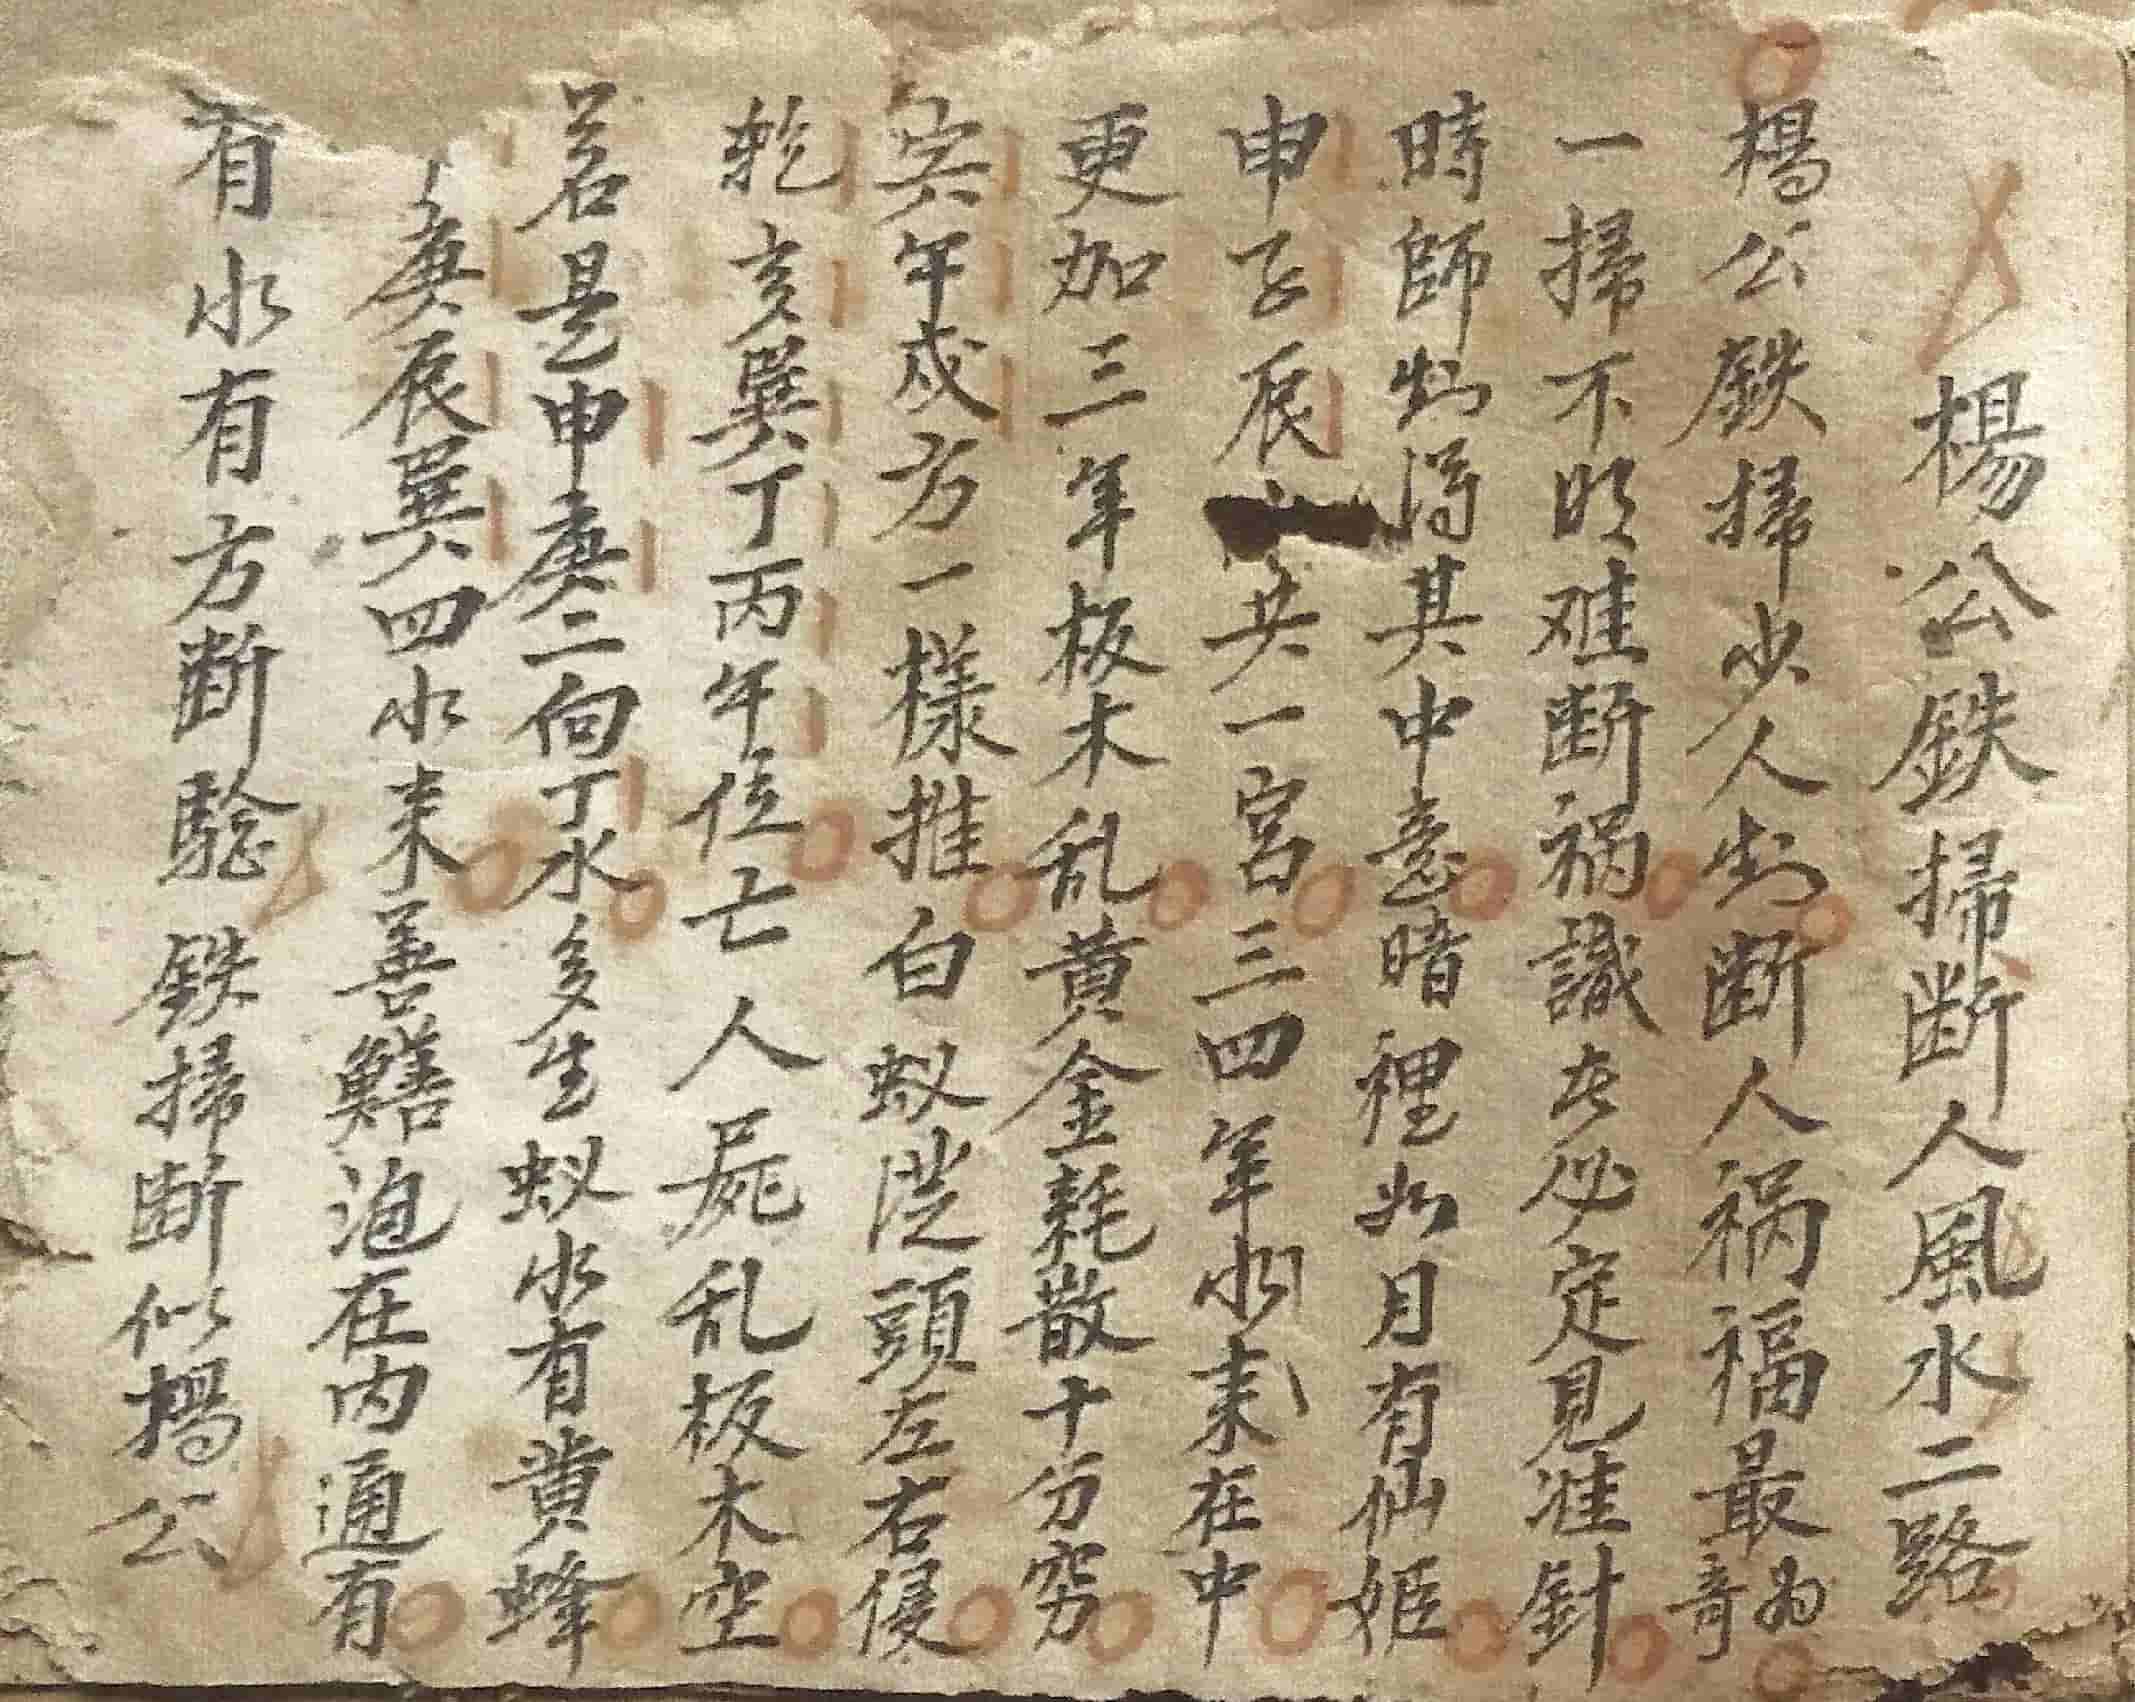 楊公鉄掃断人風水二路
楊公鉄掃少人知断人祸福最为奇
一掃不明难断祸識者必定見准針
時師知得其中意暗裡如月有仙姬
申子辰山共一宮三四年水来在中
更加三年板木乱黄金耗散十分穷
寅午戍方一樣推白蚁従頭左右侵
乾亥巽丁丙午位亡人屍乱板木空
若是申庚二向丁水多生蚁水有黄蜂
庚辰巽四水来善鱔泡在内通有
有水有方断騐鉄掃断似楊公